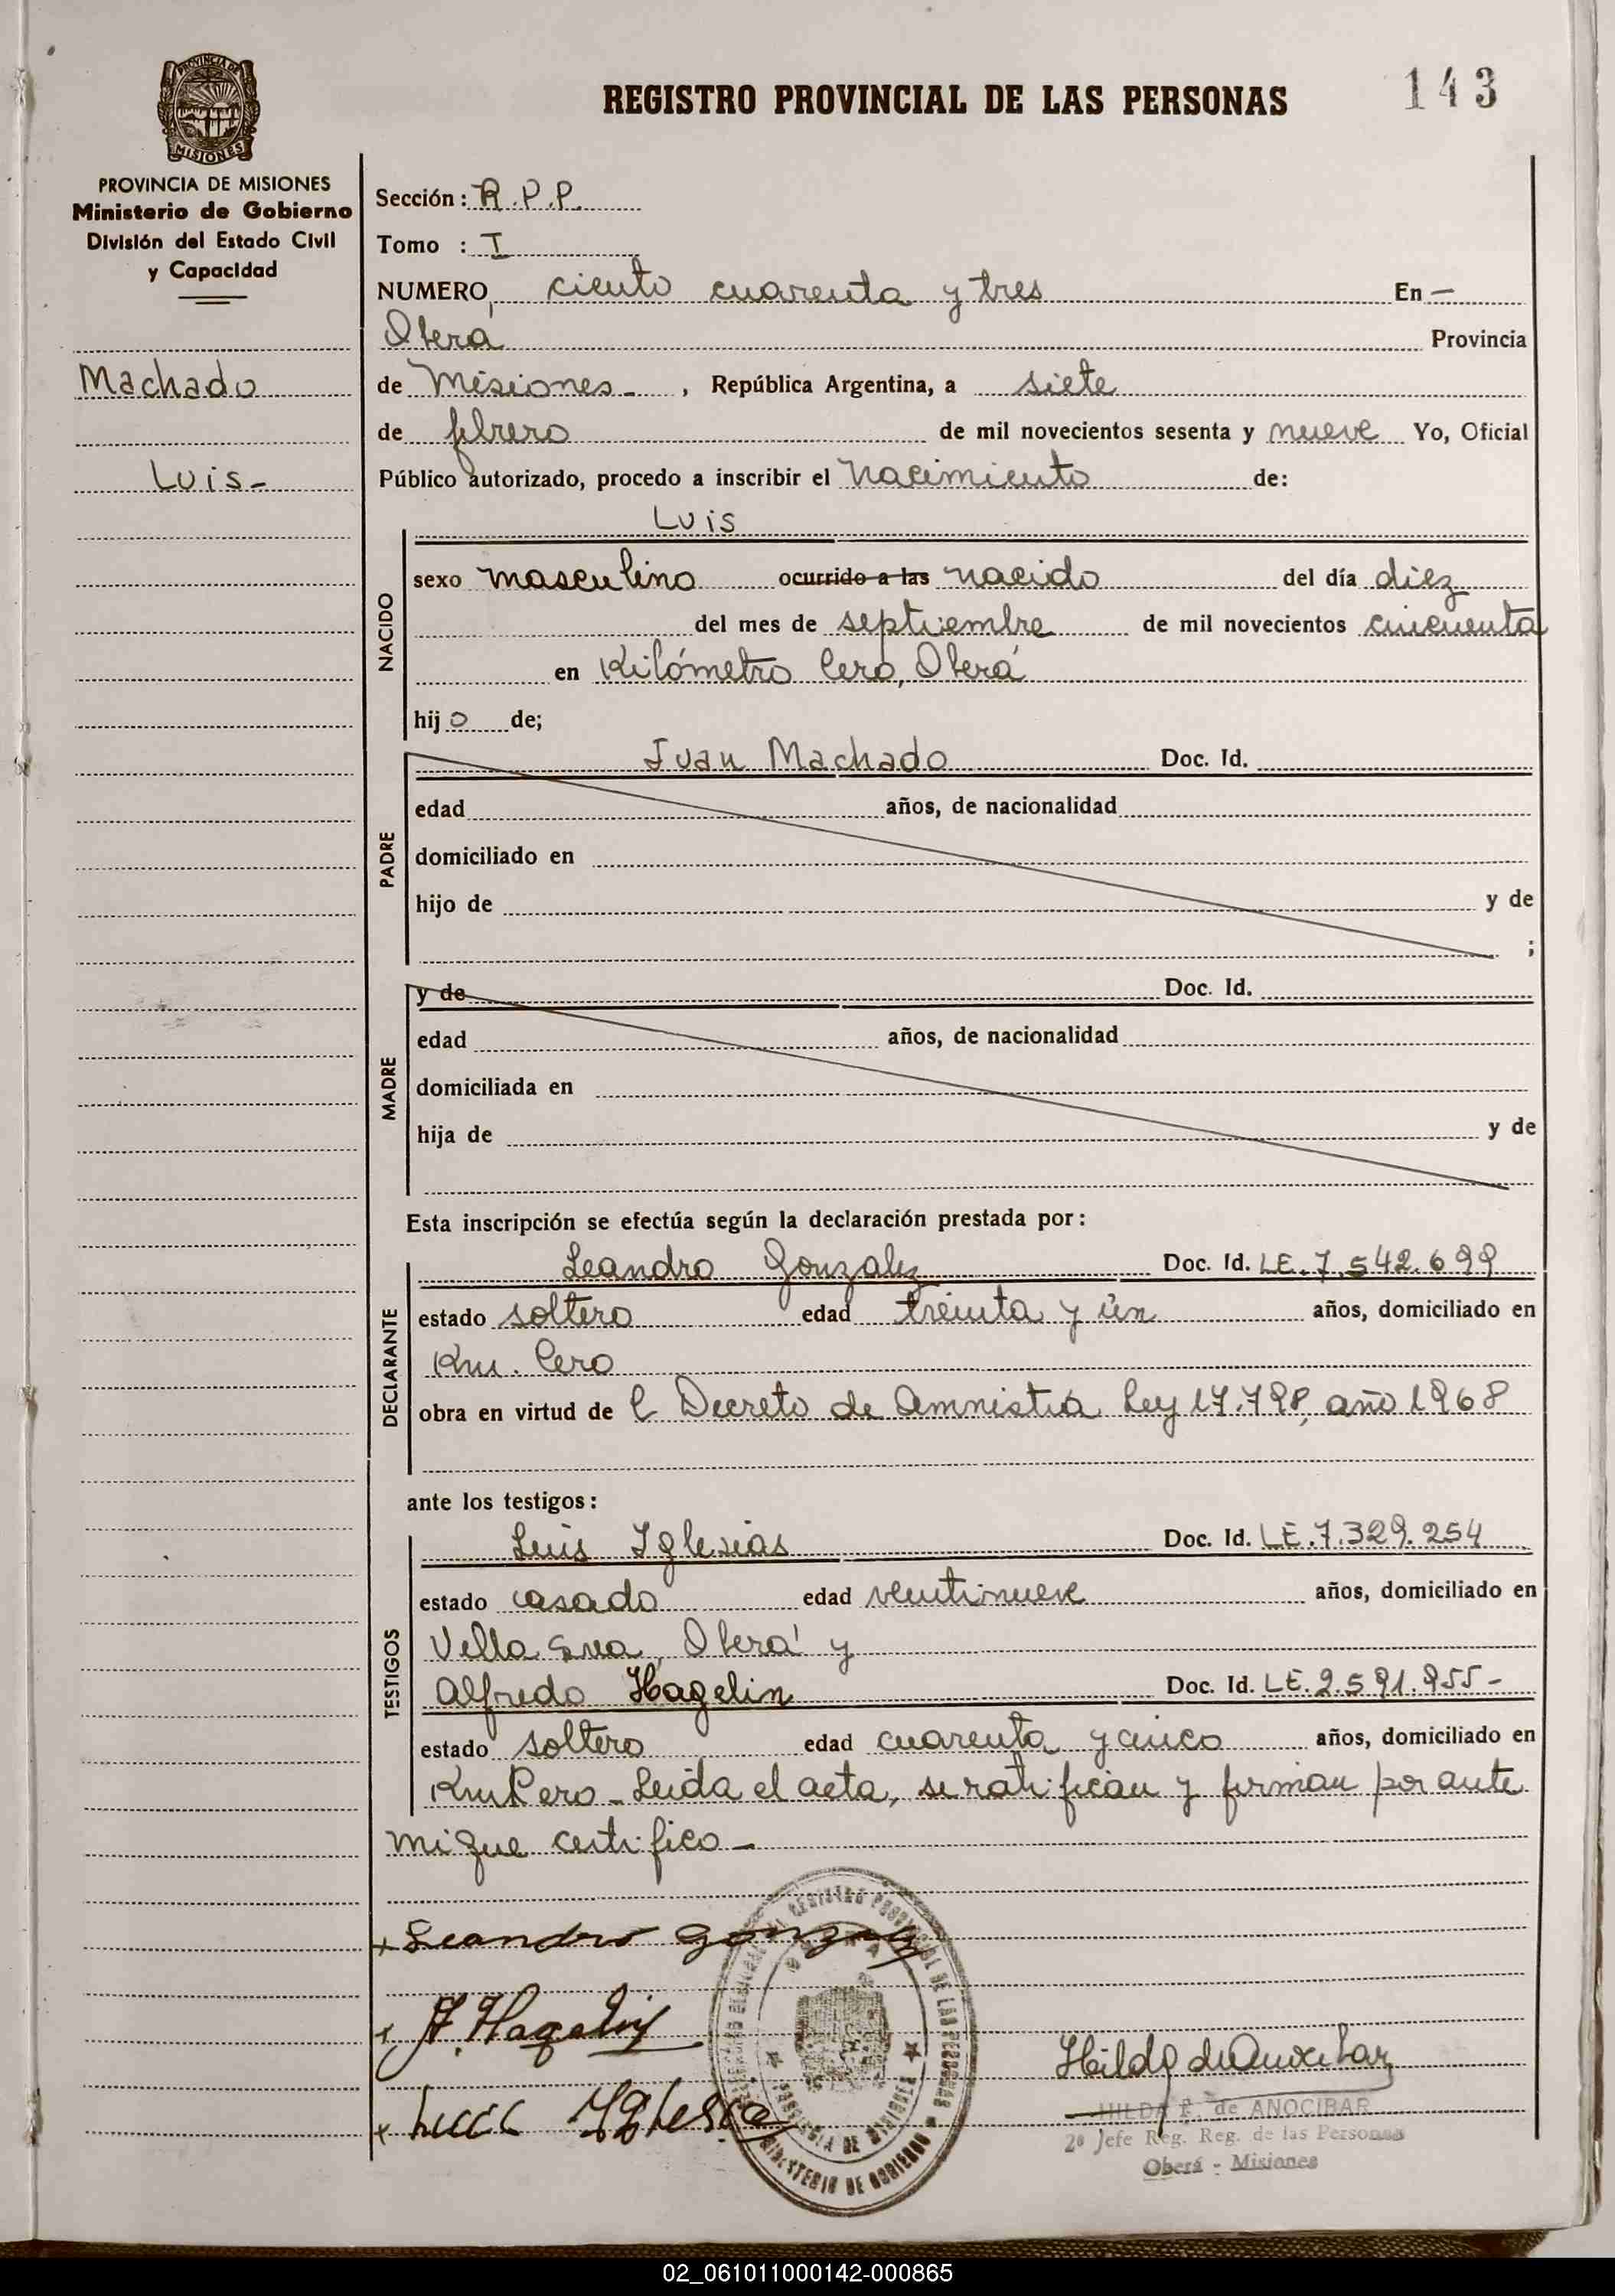 PROVINCIA DE MISIONES
REGISTRO PROVINCIAL DE LAS PERSONAS
143
PROVINCIA DE MISIONES
Ministerio de Gobierno
División del Estado Civil
y Capacidad
Machado
Luis-
Sección: R.P.P.
Tomo : I
NUMERO, ciento cuarenta y tres En —
Oberá Provincia
de Misiones- , República Argentina, a siete
de febrero de mil novecientos sesenta y nueve Yo, Oficial
Público autorizado, procedo a inscribir el Nacimiento de:
NACIDO
Luis
sexo masculino ocurrido a las nacido del día diez
del mes de septiembre de mil novecientos cincuenta
en Kilómetro Cero, Oberá
hijo de;
PADRE
Juan Machado Doc. Id.
edad años, de nacionalidad
domiciliado en
hijo de y de
;
MADRE
y de Doc. Id.
edad años, de nacionalidad
domiciliada en
hija de y de
Esta inscripción se efectúa según la declaración prestada por:
DECLARANTE
Leandro Gonzalez Doc. Id. LE.7.542.699
estado soltero edad treinta y ún años, domiciliado en
Km. Cero
obra en virtud de l Decreto de Amnistia Ley 17.798, año 1968
ante los testigos:
TESTIGOS
Luis Iglesias Doc. Id. LE.7.329.254
estado casado edad veintinueve años, domiciliado en
Villa Sva, Oberá y
Alfredo Hagelin Doc. Id. LE.2.591.955-
estado soltero edad cuarenta y cinco años, domiciliado en
Km Cero - Leida el acta, se ratifican y firman por ante
mi que certifico -
+ Leandro Gonzalez
+ A. Hagelin
+ Luis Iglesia
MINISTERIO DE GOBIERNO
HILDA F. de ANOCIBAR
2º Jefe Reg. Reg. de las Personas
Oberá - Misiones
02_061011000142-000865